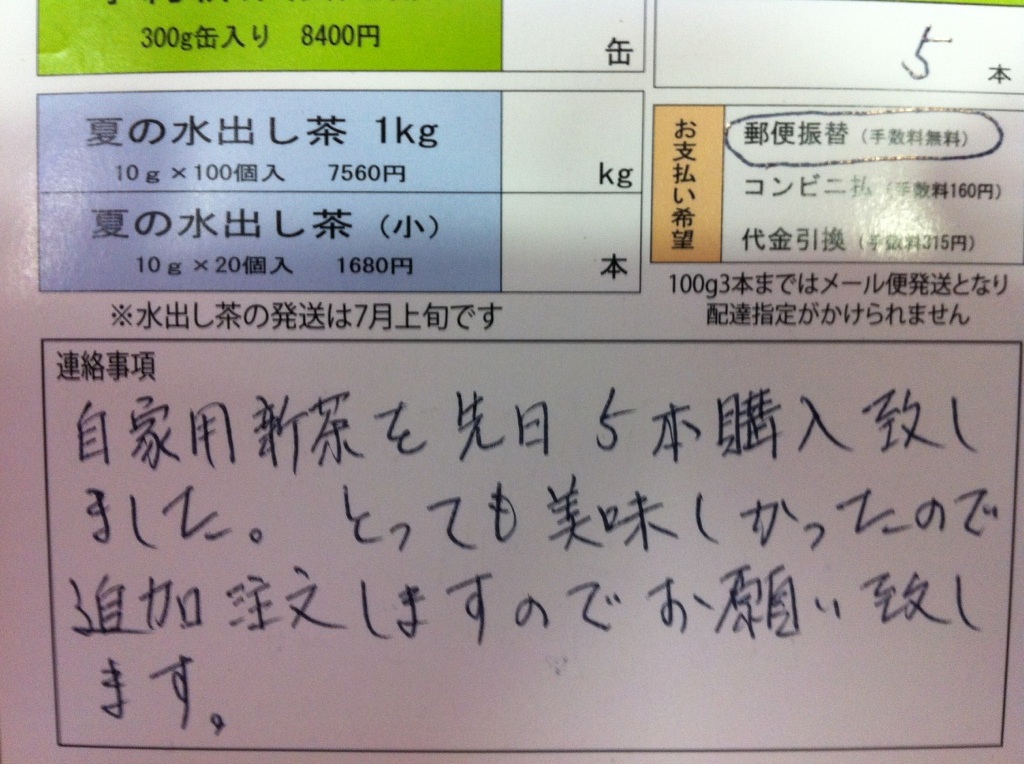 300g缶入り 8400円
缶
5 本
夏の水出し茶 1kg
10g×100個入 7560円
kg
夏の水出し茶（小）
10g×20個入 1680円
本
※水出し茶の発送は7月上旬です
お支払い希望
郵便振替（手数料無料）
コンビニ払（手数料160円）
代金引換（手数料315円）
100g3本まではメール便発送となり
配達指定がかけられません
連絡事項
自家用新茶を先日5本購入致し
ました。とっても美味しかったので
追加注文しますのでお願い致し
ます。